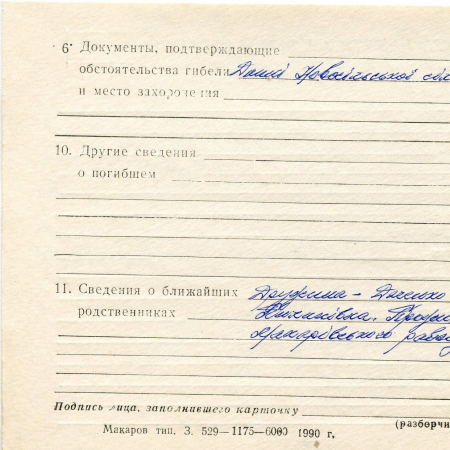 6. Документы, подтверждающие
обстоятельства гибели Дані Новосільської сіл
и место захоронения
10. Другие сведения
о погибшем
11. Сведения о ближайших Дружина -
родственниках
Макарівського району
Подпись лица, заполнившего карточку
(разборчи
Макаров тип. З. 529—1175—6000 1990 г.